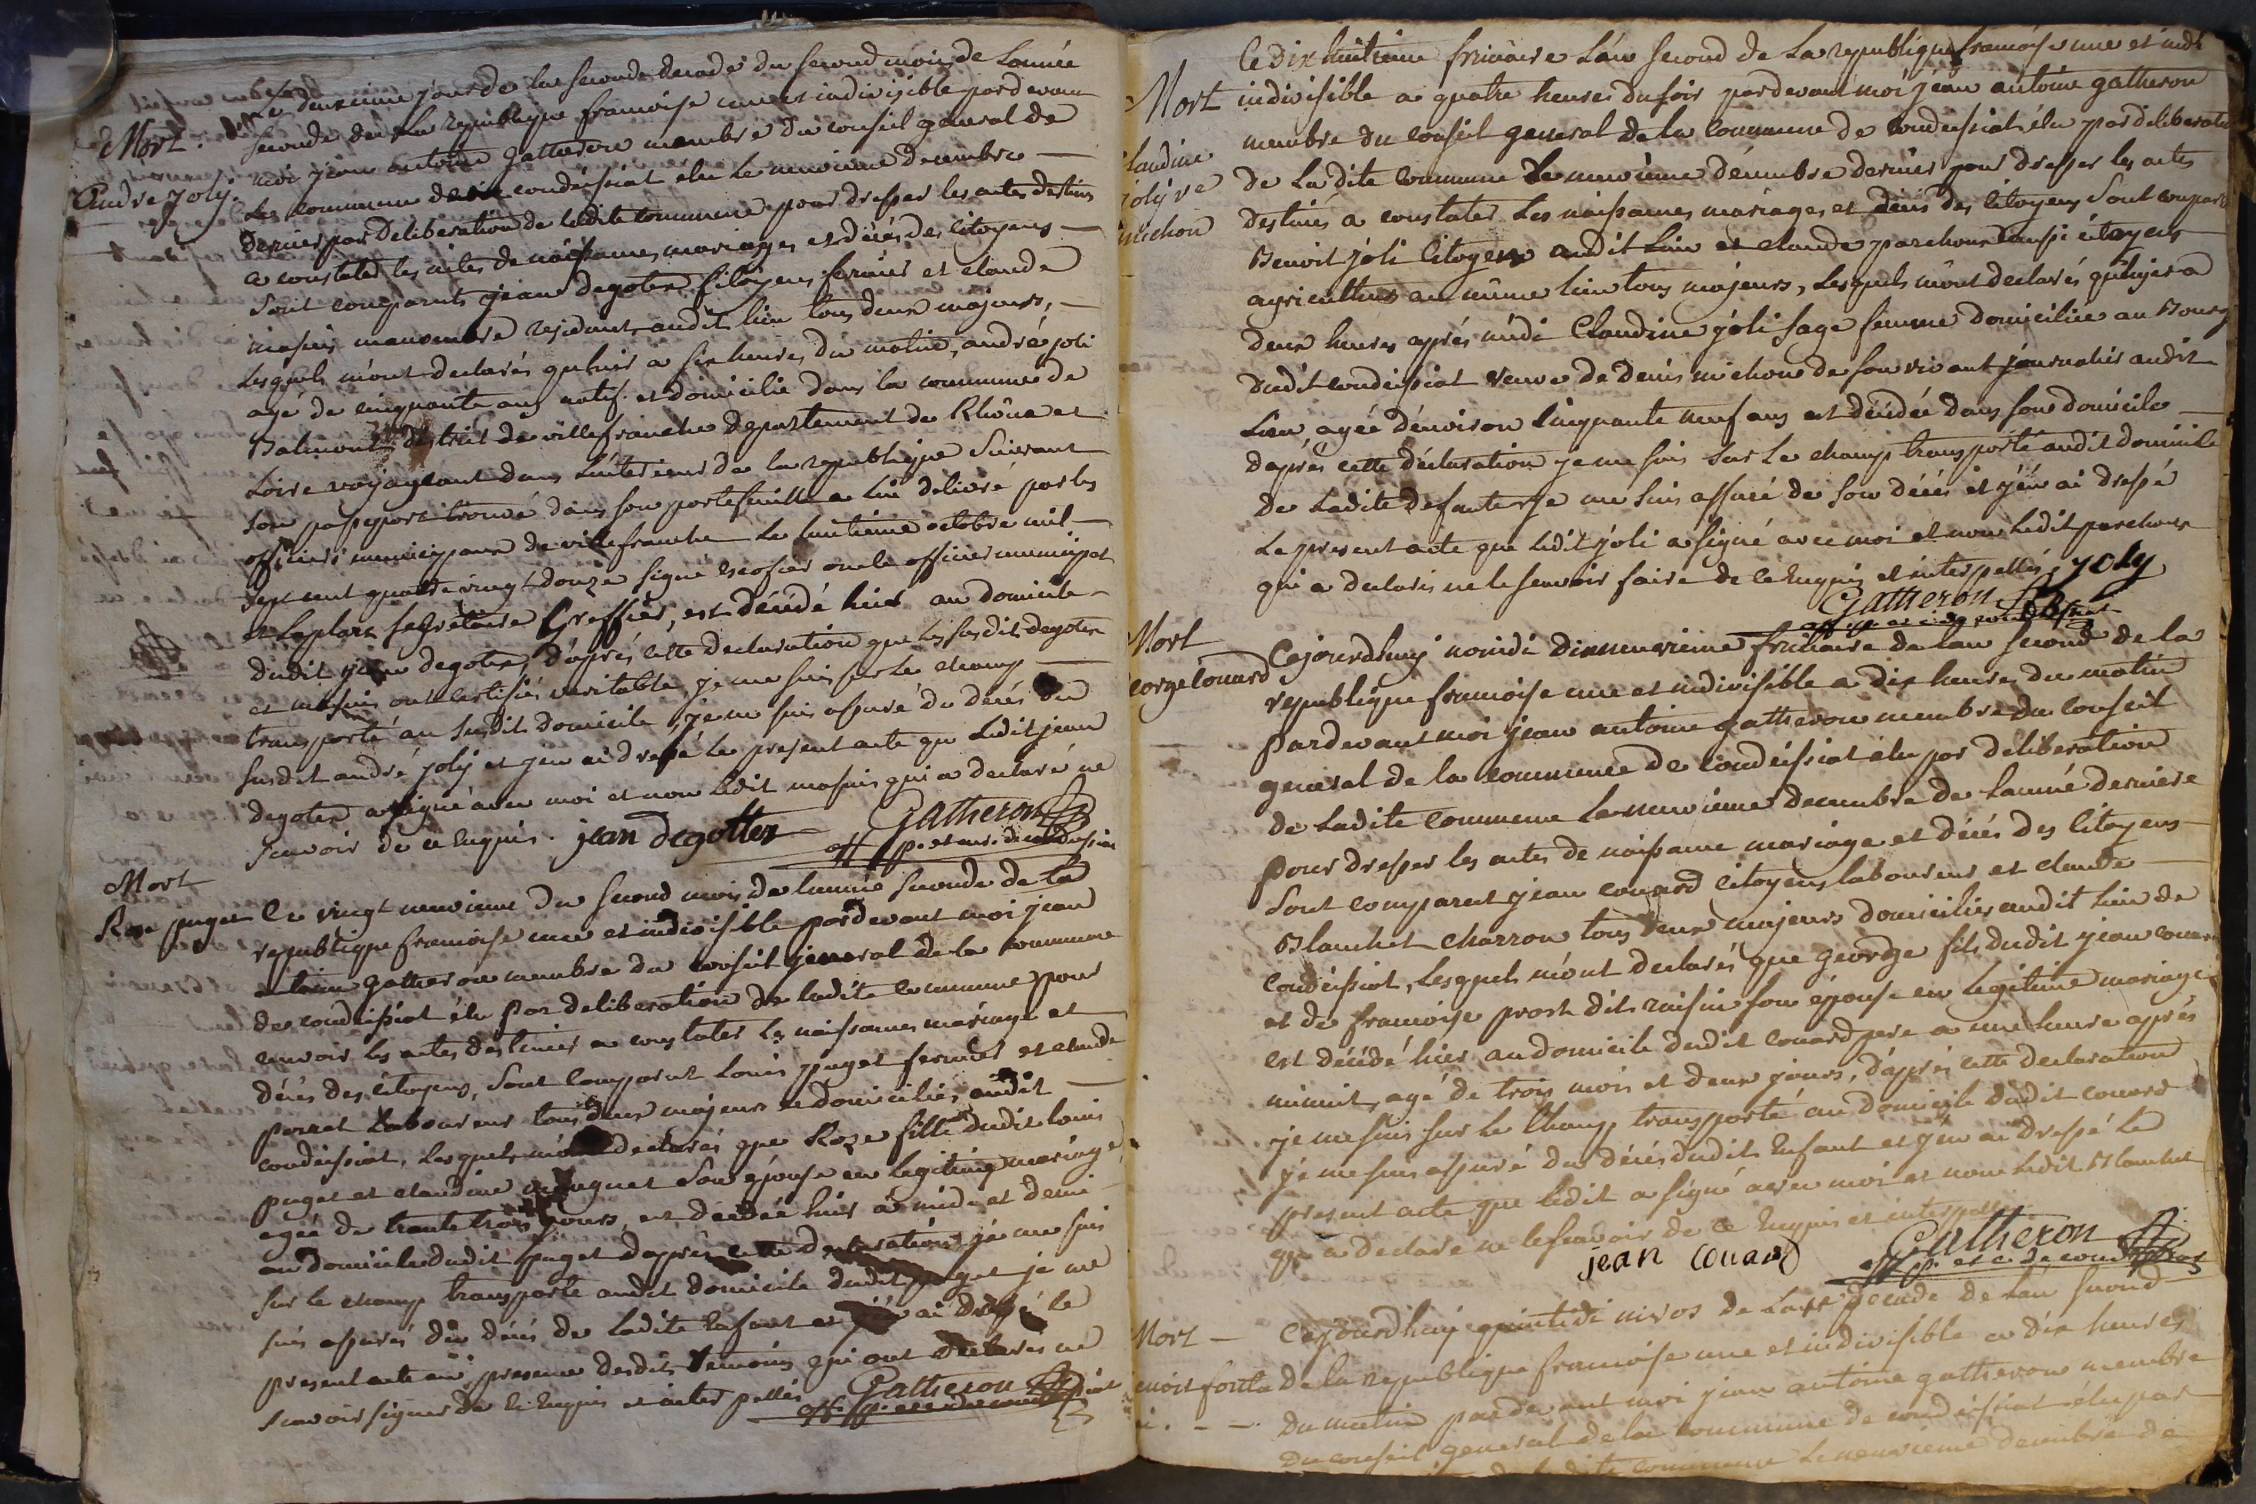 Mort.
André joly.
Le deuxieme jour de la seconde decade du second mois de L'année
seconde de La republique francoise une et indivisible pardevant
moi jean antoine Gatheron membre du conseil general de
La commune de condeissiat elu Le neuvieme decembre
dernier par deliberation de ladite commune pour dresser les actes destinés
a constater les actes de naissances mariages et décès des citoyens
sont comparuts jean degotex citoyens fermier et claude
massuis manoeuvre residants audit lieu tous deux majeurs,
Lesquels m'ont declarés qu'hier a six heures du matin, andré joli
agé de cinquante ans natif et domicilié dans la commune de
Balmont district de villefranche departement de Rhône et
Loire voyageant dans L'interieur de la republique suivant
son passeport trouvé dans son portefeuille a lui délivré par les
officiers municipaux de villefranche Le huitieme octobre mil
sept cent quatre vingt douze signé officier municipal
et Laplace secretaire Greffier, est décédé hier au domicile
dudit jean degotex, d'après cette declaration que les susdits degotex
et massuis ont certifiés veritable, je me suis sur Le champ
transporté au susdit domicile, je me suis assuré du décès du
susdit andré joly et j'en ai dressé Le present acte que Ledit jean
degotex a signé avec moi et non Ledit massuis qui a declaré ne
scavoir de ce Enquis. jean degottex Gatheron
off. p. et de condeissiat
Mort
Roze puget
Ce vingt neuvieme du second mois de L'année seconde de La
republique francoise une et indivisible pardevant moi jean
antoine gatheron membre du conseil general de la commune
de condeissiat élu Par deliberation de Ladite commune pour
recevoir les actes destinés a constater les naissances mariage et
décès des citoyens, sont comparut Louis puget fermier et claude
porret Laboureur tous deux majeurs et domiciliés audit
condeissiat, Lesquels m'ont declarés que Roze fille dudit Louis
puget et claudine son épouse en Legitime mariage
agée de trente trois jours, est décédée hier a midi et demi
au domicile dudit puget d'après cette declaration je me suis
sur le champ transporté audit domicile dudit puget je me
suis assurés du décès de Ladite Enfant et j'en ai dressé le
present acte en presence desdits temoins qui ont declarés ne
scavoir signer de ce Enquis et interpellés Gatheron
off. p. et c. de condeissiat
Mort
claudine
joly ve
michon
Ce dix huitieme frimaire L'an second de La republique francoise une et indi
indivisible a quatre heures du soir pardevant moi jean antoine gatheron
membre du conseil general de La commune de condeissiat élu par deliberation
de La dite commune Le neuvieme décembre dernier pour dresser les actes
destinés a constater Les naissances mariages et décès des citoyens sont comparu
Benoit joli citoyen audit Lieu et claude parchoux aussi citoyens
agriculteur au même lieu tous majeurs, Lesquels m'ont declarés qu'hier a
deux heures après midi Claudine joli sage femme domiciliée au Bourg
dudit condeissiat veuve de Denis michon de son vivant journalier audit
Lieu, agée d'environ cinquante neuf ans est décédée dans son domicile
d'après cette déclaration je me suis sur Le champ transporté audit domicile
de Ladite defunte je me suis assuré de son décès et j'en ai dressé
Le present acte que Ledit joli a signé avec moi et non Ledit parchoux
qui a declaré ne le scavoir faire de ce Enquis et interpellés, joly
Gatheron
Mort
george couard
Cejourdhuy nonidi dixneuvieme frimaire de L'an second de la
republique francoise une et indivisible a dix heures du matin
Pardevant moi jean antoine gatheron membre du conseil
general de la commune de condeissiat élu par deliberation
de Ladite commune Le neuvieme decembre de L'année derniere
pour dresser les actes de naissance mariage et décès des citoyens
sont comparut jean couard citoyens laboureur et claude
Blanchet charron tous deux majeurs domiciliés audit lieu de
condeissiat, Lesquels m'ont declarés que george fils dudit jean couard
et de francoise prost dit raisin son épouse en Legitime mariage
est décédé hier au domicile dudit couard pere a une heure après
minuit, agé de trois mois et deux jours, d'après cette declaration
je me suis sur le Champ transporté au domicile dudit couard
je me suis assuré du décès dudit Enfant et j'en ai dressé Le
present acte que Ledit a signé avec moi et non Ledit Blanchet
qui a declaré ne le scavoir de ce Enquis et interpellé
jean couard Gatheron
off. p. et c. de condeissiat
Mort
Cejourdhuy quintidi nivos de La decade de L'an second
de La republique francoise une et indivisible a dix heures
du matin pardevant moi jean antoine gatheron membre
du conseil general de la commune de condeissiat élu par
de Ladite commune Le neuvieme decembre de